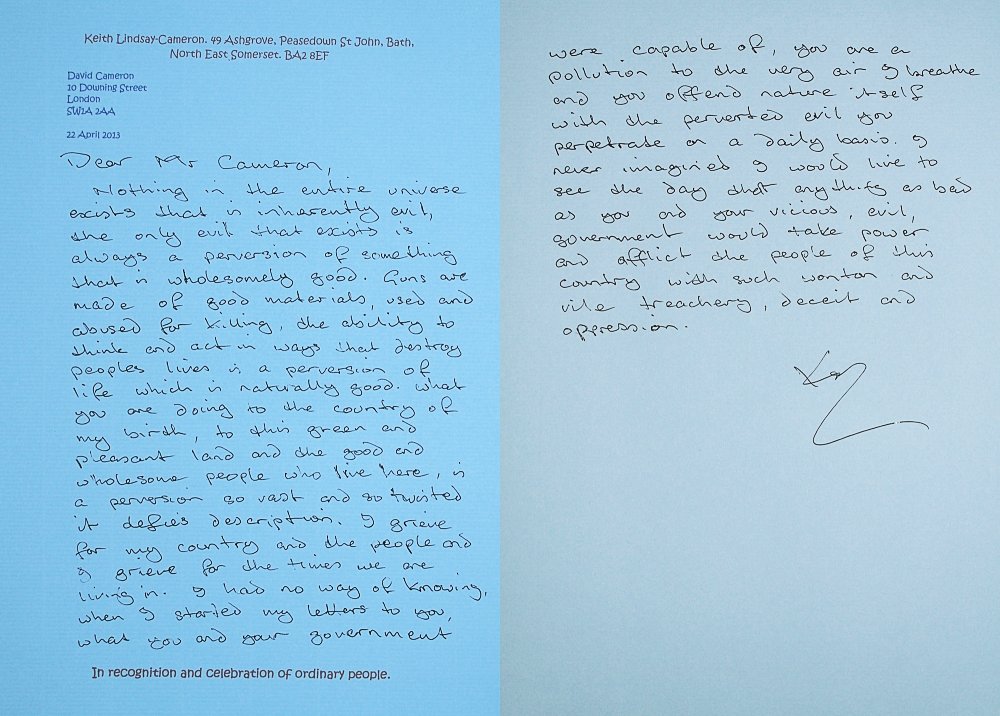 Keith Lindsay-Cameron. 49 Ashgrove, Peasedown St John, Bath,
North East Somerset. BA2 8EF
David Cameron
10 Downing Street
London
SW1A 2AA
22 April 2013
Dear Mr Cameron,
Nothing in the entire universe
exists that is inherently evil,
the only evil that exists is
always a perversion of something
that is wholesomely good. Guns are
made of good materials, used and
abused for killing, the ability to
think and act in ways that destroy
peoples lives is a perversion of
life which is naturally good. What
you are doing to the country of
my birth, to this green and
pleasant land and the good and
wholesome people who live here, is
a perversion so vast and so twisted
it defies description. I grieve
for my country and the people and
I grieve for the times we are
living in. I had no way of knowing,
when I started my letters to you,
what you and your government
In recognition and celebration of ordinary people.
were capable of, you are a
pollution to the very air I breathe
and you offend nature itself
with the perverted evil you
perpetrate on a daily basis. I
never imagined I would live to
see the day that anything as bad
as you and your vicious, evil,
government would take power
and afflict the people of this
country with such wonton and
vile treachery, deceit and
oppression.